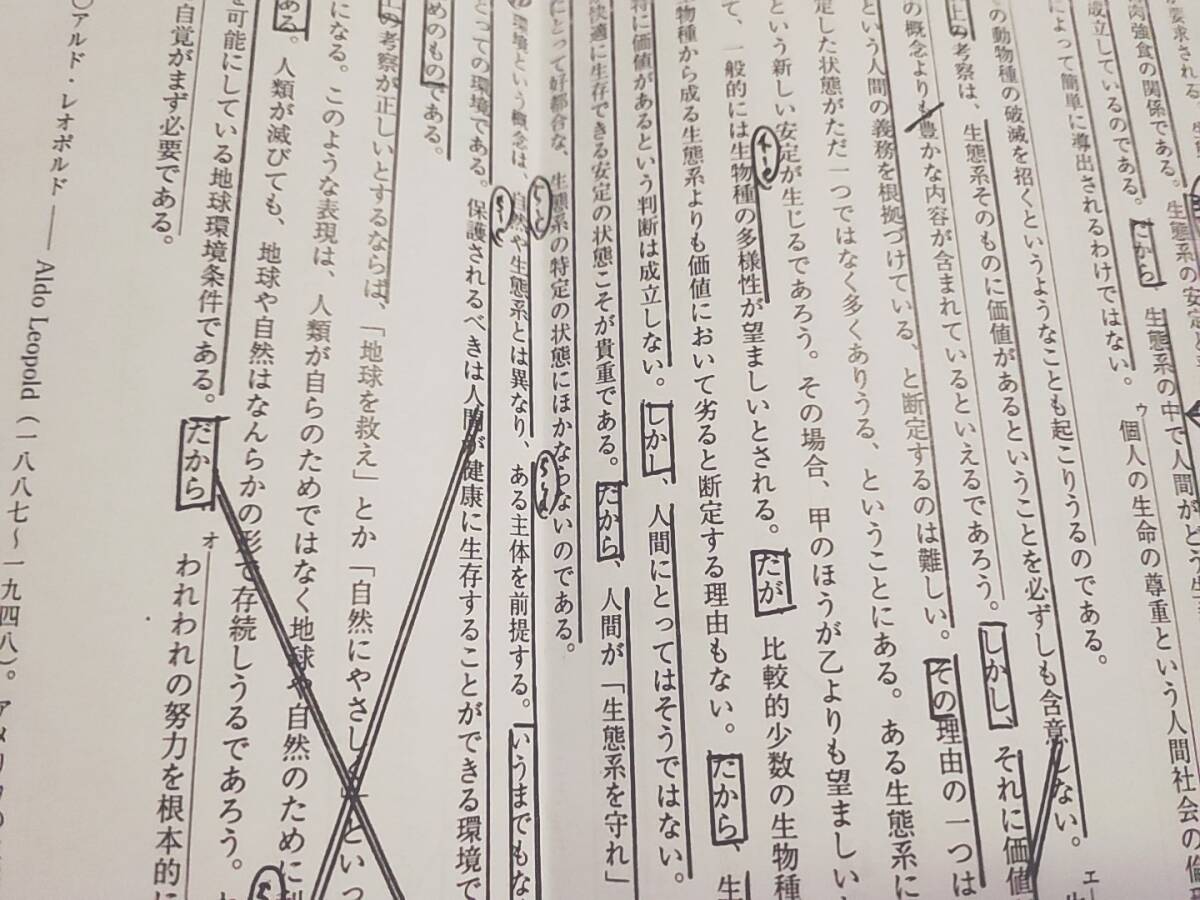 が要求される。
肉強食の関係である。生態系の安定と
成立しているのである。だから、生態系の中で人間がどう生
によって簡単に導出されるわけではない。ゥ個人の生命の尊重という人間社会の倫理
の動物種の破滅を招くというようなことも起こりうるのである。
上の考察は、生態系そのものに価値があるということを必ずしも含意しない。エ
の概念よりも豊かな内容が含まれているといえるであろう。しかし、それに価値
という人間の義務を根拠づけている、と断定するのは難しい。その理由の一つは
定した状態がただ一つではなく多くありうる、ということにある。ある生態系に
という新しい安定が生じるであろう。その場合、甲のほうが乙よりも望ましい
て、一般的には生物種の多様性が望ましいとされる。だが、比較的少数の生物種
生物種から成る生態系よりも価値において劣ると断定する理由もない。だから、生
特に価値があるという判断は成立しない。しかし、人間にとってはそうではない。
快適に生存できる安定の状態こそが貴重である。だから、人間が「生態系を守れ」
にとって好都合な、生態系の特定の状態にほかならないのである。
環境という概念は、自然や生態系とは異なり、ある主体を前提する。いうまでもな
とっての環境である。保護されるべきは人間が健康に生存することができる環境で
めのものである。
上の考察が正しいとするならば、「地球を救え」とか「自然にやさしく」といっ
になる。このような表現は、人類が自らのためではなく地球や自然のために利
ある。人類が滅びても、地球や自然はなんらかの形で存続しうるであろう。
を可能にしている地球環境条件である。だから、ォわれわれの努力を根本的に
自覚がまず必要である。
○アルド・レオポルド── Aldo Leopold（一八八七～一九四八）。アメリカの